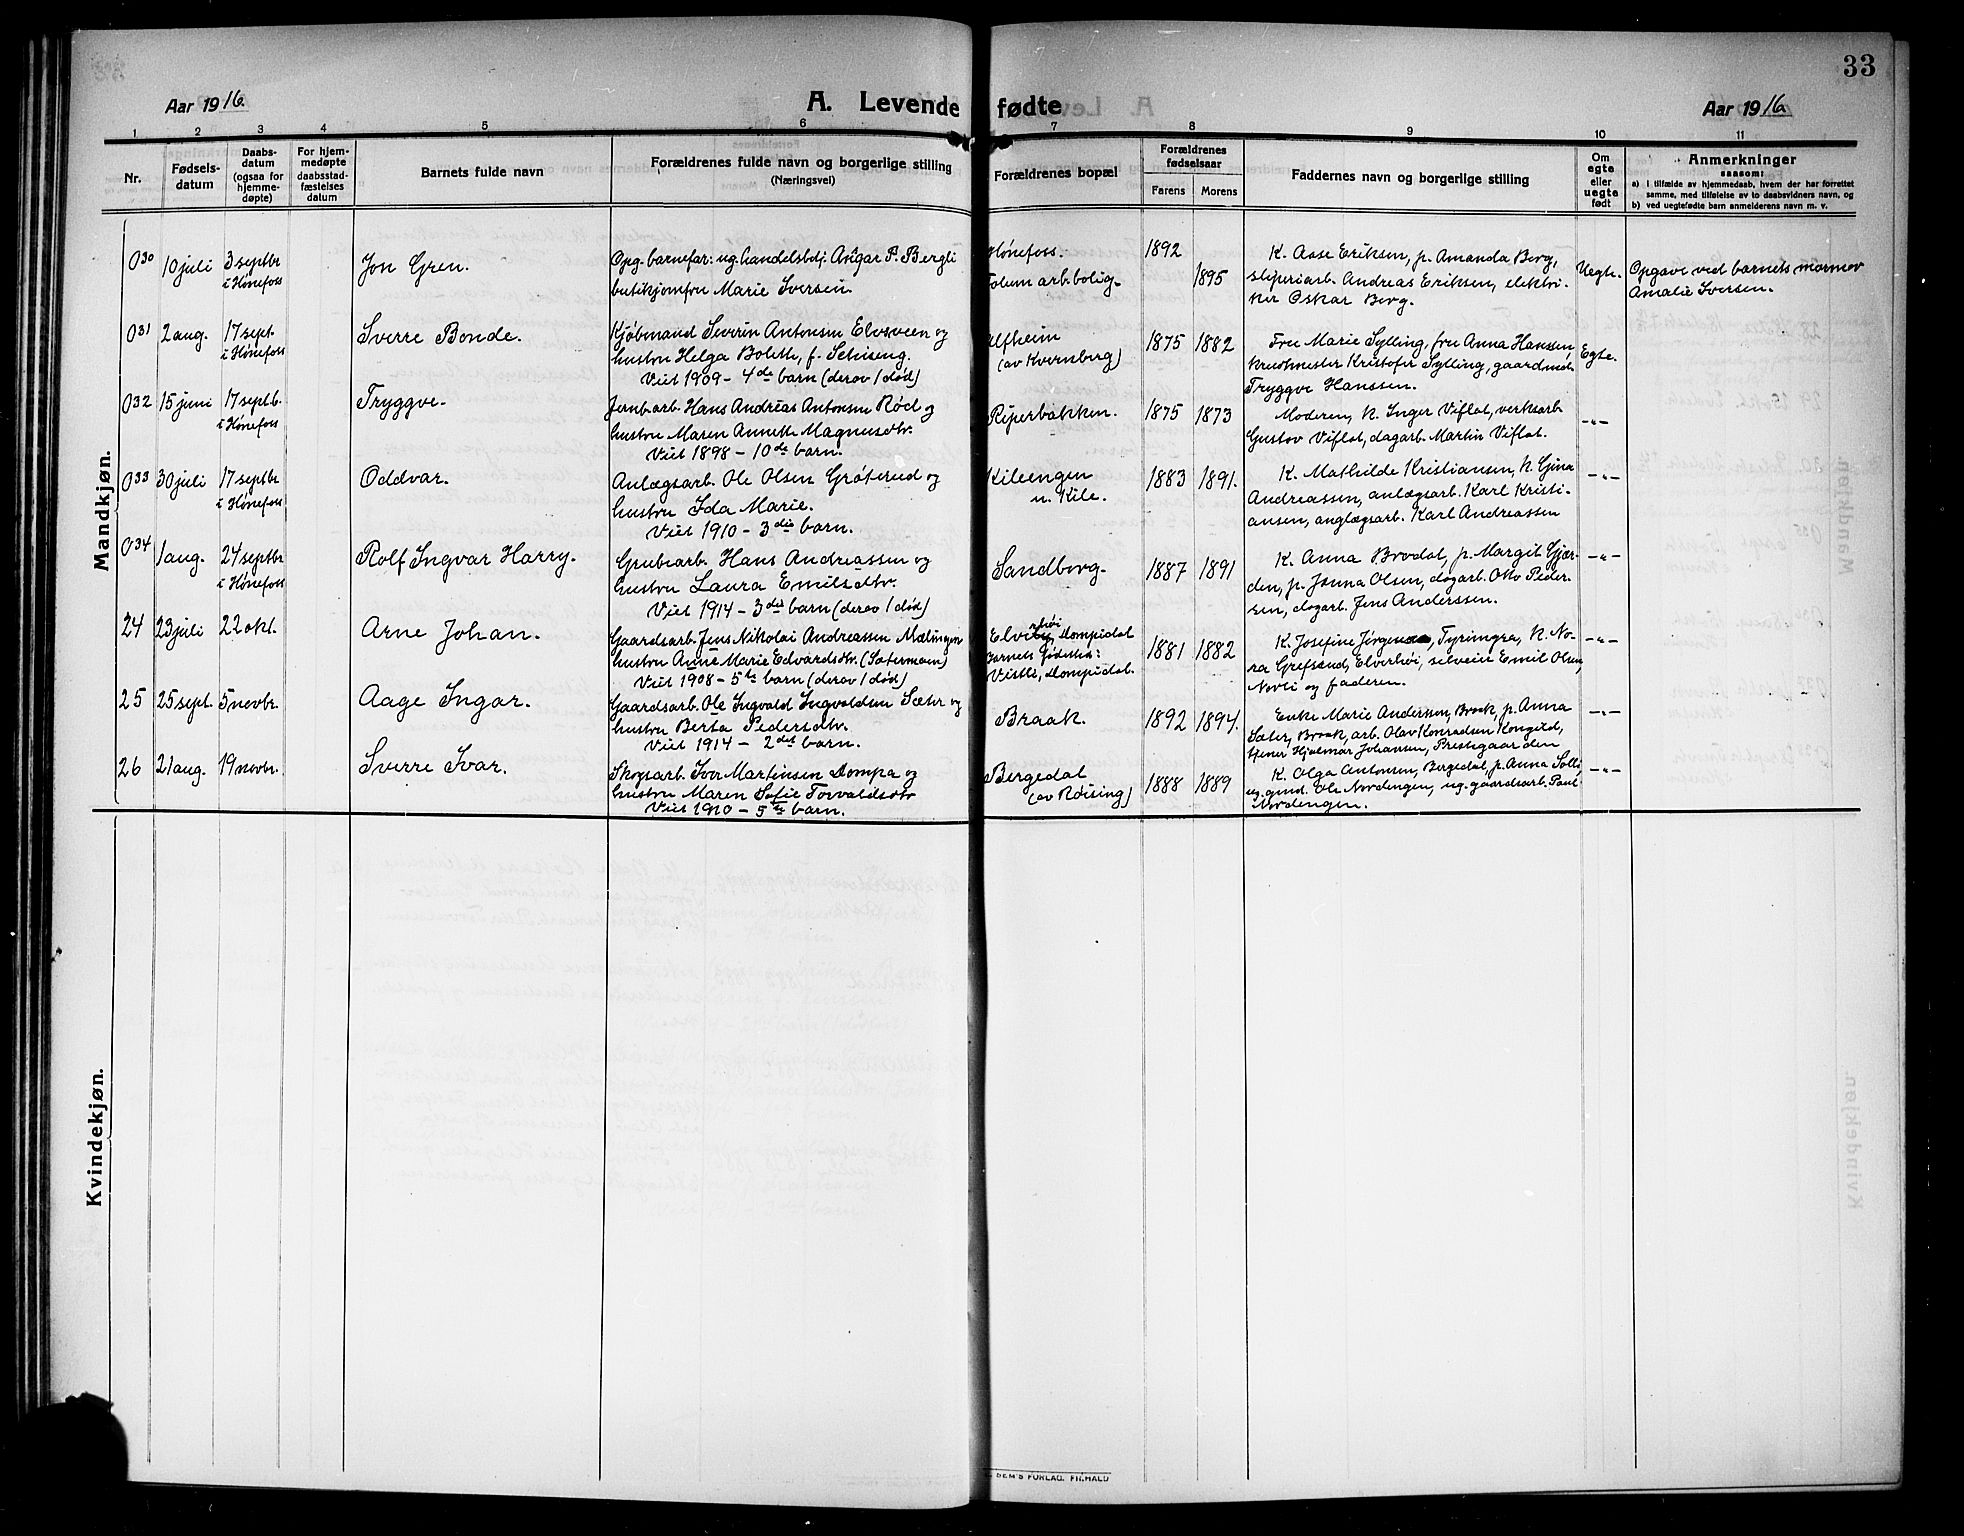 33
Aar 1916.
A. Levende fødte
Aar 1916
1 2 3 4 5 6 7 8 9 10 11
Nr.
Fødsels-
datum
Daabs-
datum
(ogsaa for
hjemme-
døpte)
For hjem-
medøpte
daabsstad-
fæstelses
datum
Barnets fulde navn
Forældrenes fulde navn og borgerlige stilling
(Næringsvei)
Forældrenes bopæl
Forældrenes
fødselsaar
Farens Morens
Faddernes navn og borgerlige stilling
Om
egte
eller
uegte
født
Anmerkninger
saasom:
a) i tilfælde av hjemmedaab, hvem der har forrettet
samme, med tilføielse av to daabsvidners navn, og
b) ved uegtefødte barn anmelderens navn m. v.
Mandkjøn.
030 10 juli 3 septbr
i Hønefoss
Jon Gren.
Opg. barnefar: ug. handelsbetj. Ansgar P. Bergli
butikjomfru Marie Iversen.
Hønefoss.
Folum arb.bolig.
1892
1895
K. Aase Eriksen, p. Amanda Berg,
sliperiarb. Andreas Eriksen, elektri-
ker Oskar Berg.
Uegte.
Opgave ved barnets mormor
Amalie Iversen.
031 2 aug. 17 sept.
i Hønefoss
Sverre Bonde.
Kjøbmand Severin Antonsen Elvesveen og
hustru Helga Bolette, f. Schiseng.
Viet 1909 - 4de barn (derav 1 død)
Alfheim
(av Kvernberg)
1875 1882
Fru Marie Sylling, fru Anna Hanssen,
Kristofer Sylling, gaardmd.
Tryggve Hanssen.
Egte.
032 15 juni 17 septb.
i Hønefoss
Tryggve.
Jernb.arb. Hans Andreas Antonsen Rød og
hustru Maren Annette Magnusdtr.
Viet 1898 - 10de barn.
Piperbakken.
1875 1873
Moderen, K. Inger Viflat, verksarb
Gustav Viflat, dagarb. Martin Viflat.
-"-
033 30 juli 17 septbr
i Hønefoss
Oddvar.
Anlægsarb. Ole Olsen Grøterud og
hustru Ida Marie.
Viet 1910 - 3die barn.
Kileengen
u. Kile.
1883 1891.
K. Mathilde Kristiansen, K. Gina
Andreassen, anlægsarb. Karl Kristi-
ansen, anglægsarb. Karl Andreassen
-"-
034 1 aug. 24 septbr
i Hønefoss
Rolf Ingvar Harry.
Grubearb. Hans Andreassen og
hustru Laura Emilsdtr.
Viet 1914 - 3die barn (derav 1 død)
Sandborg.
1887 1891
K. Anna Brodal, p. Margit Gjær-
den, p. Jenna Olsen, dagarb. Otto Peder-
sen, dagarb. Jens Anderssen.
-"-
24 23 juli 22 okt.
Arne Johan.
Gaardsarb. Jens Nikolai Andreassen Mælingen
hustru Anne Marie Edvardsdtr. (Sætermoen)
Viet 1908 - 5te barn (derav 1 død)
Dompidal
Barnets fødested:
Vistli, Dompidal.
1881 1882
K. Josefine Jørgensen, Tyrimyra, K. No-
ra Grefsrud, Elverhøi, selveier Emil Olsen,
Novli og faderen.
-"-
25 25 sept. 5 novbr.
Aage Ingar.
Gaardsarb. Ole Ingvald Ingvaldsen Sæter og
hustru Berta Pedersdtr.
Viet 1914 - 2det barn.
Braak.
1892 1894.
Enke Marie Andersen, Braak, p. Anna
Sæter, Braak, arb. Olav Konradsen Kongerd,
tjener Hjalmar Johansen, Prestegaarden
-"-
26 21 aug. 19 novbr.
Sverre Ivar.
Skogsarb. Iver Martinsen Dompa og
hustru Maren Sofie Torvaldsdtr
Viet 1910 - 5te barn.
Bergedal
(av Røising)
1888 1889
K. Olga Antonsen, Bergedal, p. Anna Solli,
ug. gmd. Ole Nordengen, ug. gaardsarb. Paul
Nordengen.
-"-
Kvindekjøn.
SEM'S FORLAG. FR.HALD